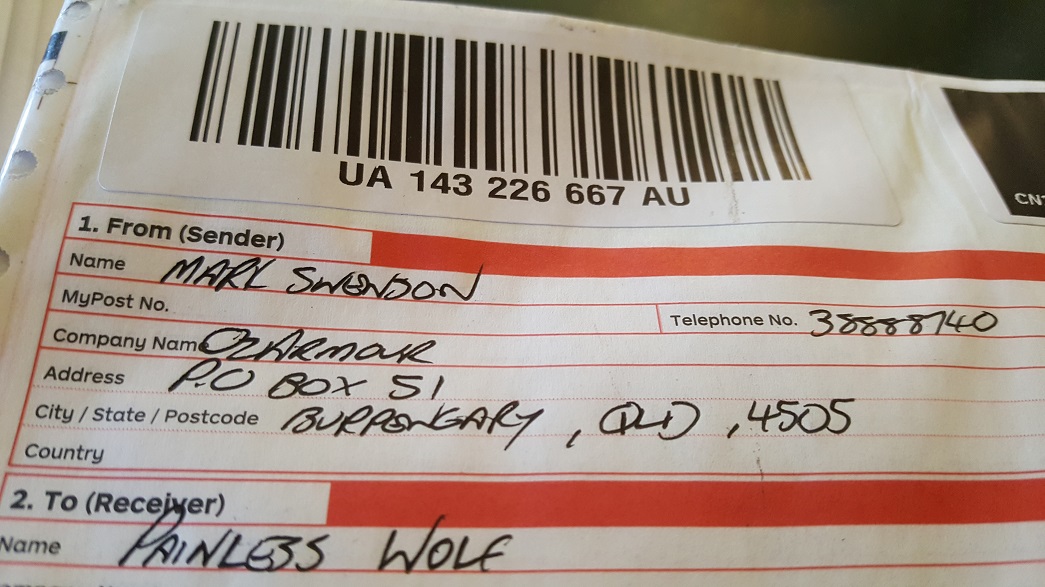 UA 143 226 667 AU
1. From (Sender)
Name MARK SWENSON
MyPost No. Telephone No. 38888740
Company Name OZARMOUR
Address P.O BOX 51
City / State / Postcode BURPENGARY, QLD, 4505
Country
2. To (Receiver)
Name PAINLESS WOLF